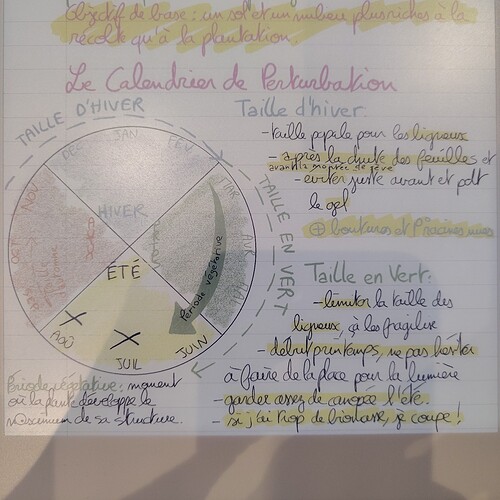 Objectif de base : un sol et un milieu plus riches à la
récolte qu'à la plantation.
Le Calendrier de Perturbation
TAILLE D'HIVER
DEC
JAN
FEV
MAR
AVR
MAI
JUIN
JUIL
AOÛ
OCT
NOV
HIVER
ÉTÉ
Période végétative
TAILLE EN VERT
Taille d'hiver.
- taille popale pour les ligneux
- après la chute des feuilles et
avant la montée de sève
- éviter juste avant et pdt
le gel
⊕ boutures et P° racines nues
Taille en Vert.
- limiter la taille des
ligneux, ça les fragilise
- début printemps, ne pas hésiter
à faire de la place pour la lumière
- garder assez de canopée l'été.
- si j'ai trop de biomasse, je coupe !
Période végétative : moment
où la plante développe le
maximum de sa structure.